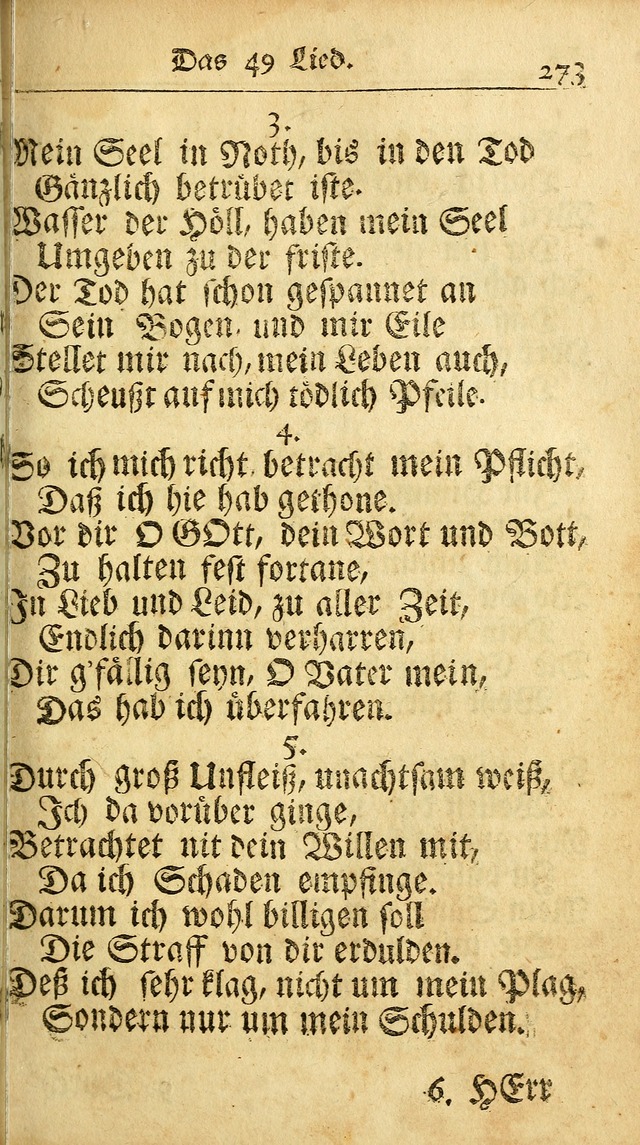 Das 49 Lied.
273
3.
Mein Seel in Noth, bis in den Tod
Gäntzlich betrübet iste.
Wasser der Höll, haben mein Seel
Umgeben zu der friste.
Der Tod hat schon gespannet an
Sein Bogen, und mir Eile
Stellet mir nach, mein Leben auch,
Scheußt auf mich tödlich Pfeile.
4.
So ich mich richt, betracht mein Pflicht,
Daß ich hie hab gethone.
Vor dir O GOtt, dein Wort und Bott,
Zu halten fest fortane,
In Lieb und Leid, zu aller Zeit,
Endlich darinn verharren,
Dir g'fällig seyn, O Vater mein,
Das hab ich überfahren.
5.
Durch groß Unfleiß, unachtsam weiß,
Ich da vorüber ginge,
Betrachtet nit dein Willen mit,
Da ich Schaden empfinge.
Darum ich wohl billigen soll
Die Straff von dir erdulden.
Deß ich sehr klag, nicht um mein Plag,
Sondern nur um mein Schulden.
6. HErr